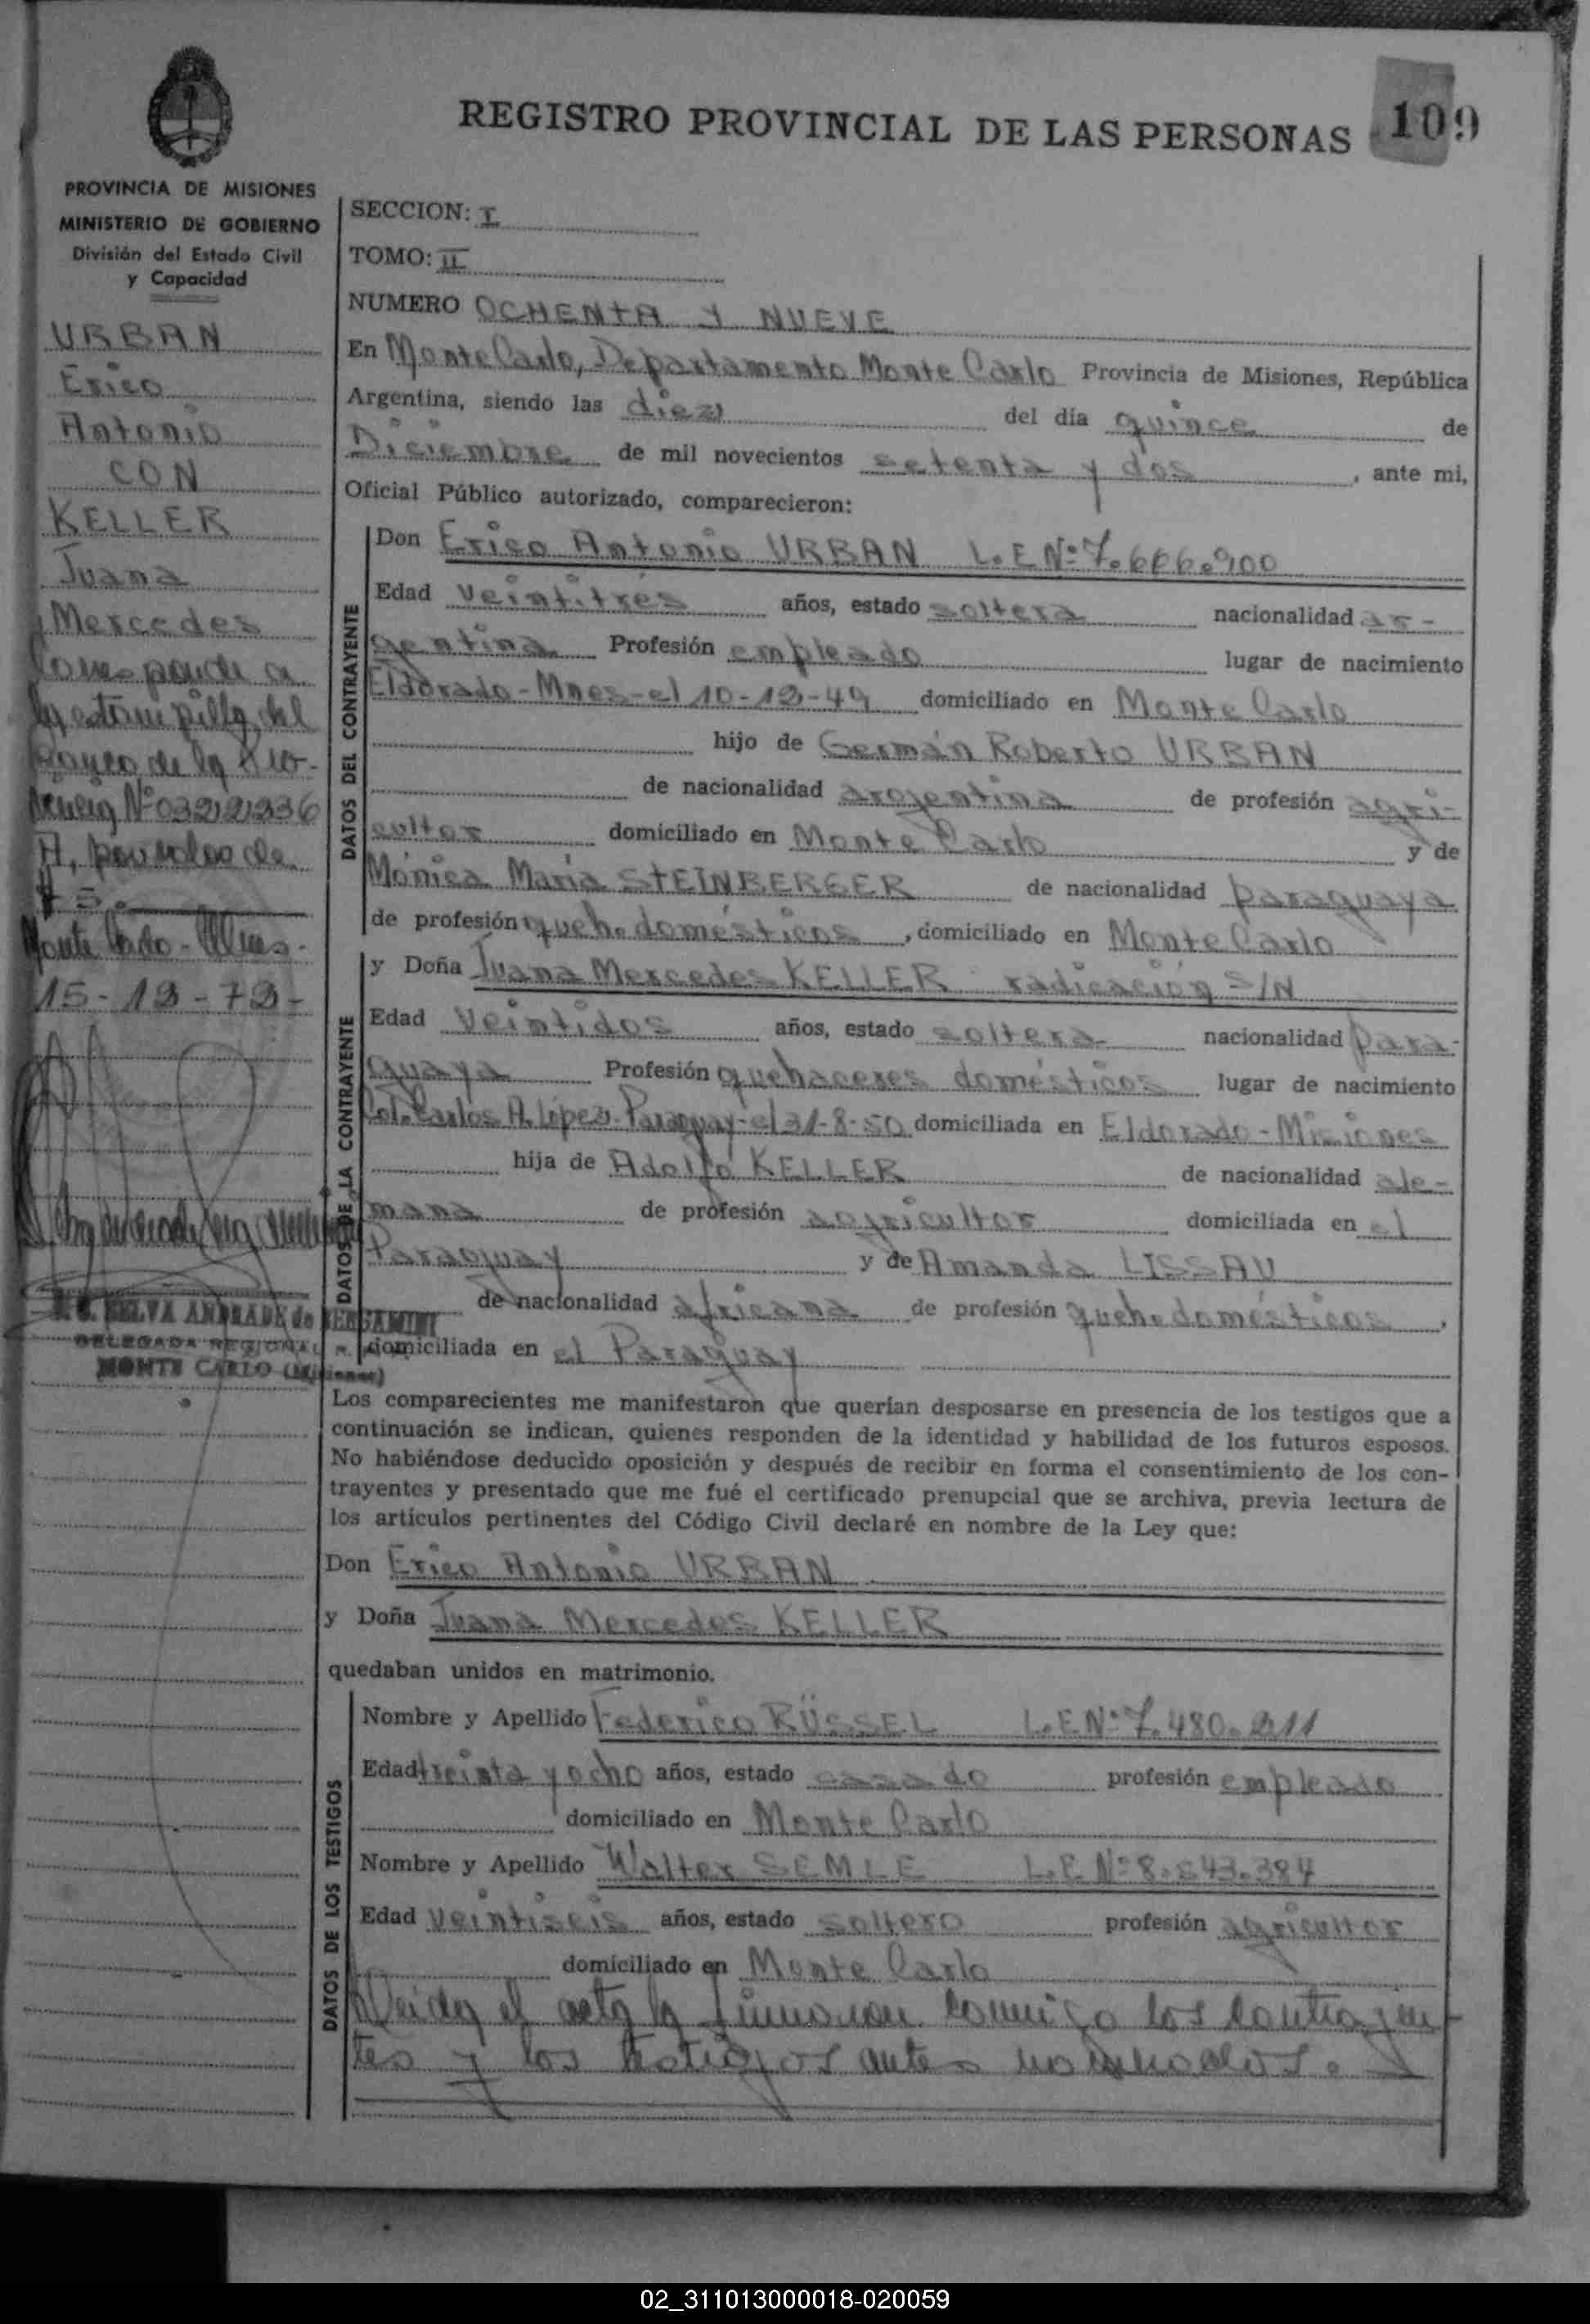 REGISTRO PROVINCIAL DE LAS PERSONAS
109
PROVINCIA DE MISIONES
MINISTERIO DE GOBIERNO
División del Estado Civil
y Capacidad
URBAN
Erico
Antonio
CON
KELLER
Juana
Mercedes
Corresponde a
la estampilla del
de la Pro-
vincia Nº 0322336
A, por valor de
$ 5.-
Monte Carlo - Mnes -
15-12-72-
SELVA ANDRADE de BERGAMINI
DELEGADA REGIONAL
MONTE CARLO (Misiones)
SECCION: I
TOMO: II
NUMERO OCHENTA Y NUEVE
En Monte Carlo, Departamento Monte Carlo Provincia de Misiones, República
Argentina, siendo las diez del día quince de
Diciembre de mil novecientos setenta y dos, ante mi,
Oficial Público autorizado, comparecieron:
DATOS DEL CONTRAYENTE
Don Erico Antonio URBAN L.E Nº 7.666.900
Edad veintitrés años, estado soltera nacionalidad ar-
gentina Profesión empleado lugar de nacimiento
Eldorado-Mnes-el 10-12-49 domiciliado en Monte Carlo
hijo de Germán Roberto URBAN
de nacionalidad argentina de profesión agri-
cultor domiciliado en Monte Carlo y de
Mónica María STEINBERGER de nacionalidad paraguaya
de profesión queh. domésticos, domiciliado en Monte Carlo
DATOS DE LA CONTRAYENTE
y Doña Juana Mercedes KELLER radicación S/N
Edad veintidos años, estado soltera nacionalidad para-
guaya Profesión quehaceres domésticos lugar de nacimiento
Col. Carlos A. López-Paraguay-el 31-8-50 domiciliada en Eldorado-Misiones
hija de Adolfo KELLER de nacionalidad ale-
mana de profesión agricultor domiciliada en el
Paraguay y de Amanda LISSAU
de nacionalidad africana de profesión queh. domésticos,
domiciliada en el Paraguay
Los comparecientes me manifestaron que querían desposarse en presencia de los testigos que a
continuación se indican, quienes responden de la identidad y habilidad de los futuros esposos.
No habiéndose deducido oposición y después de recibir en forma el consentimiento de los con-
trayentes y presentado que me fué el certificado prenupcial que se archiva, previa lectura de
los artículos pertinentes del Código Civil declaré en nombre de la Ley que:
Don Erico Antonio URBAN
y Doña Juana Mercedes KELLER
quedaban unidos en matrimonio.
DATOS DE LOS TESTIGOS
Nombre y Apellido Federico RÜSSEL L.E Nº 7.480.211
Edad treinta y ocho años, estado casado profesión empleado
domiciliado en Monte Carlo
Nombre y Apellido Walter SEMLE L.E Nº 8.543.384
Edad veintiseis años, estado soltero profesión agricultor
domiciliado en Monte Carlo
Leida el acta la firmaron conmigo los contrayen-
tes y los testigos antes nombrados.
02_311013000018-020059